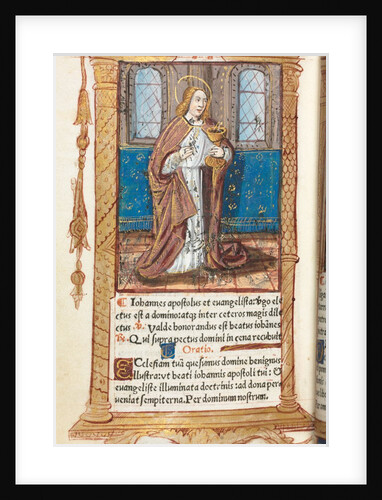 Iohannes apostolus et euangelista: v̄go ele
ctus est a domino: atq; inter ceteros magis dil
ctus ℣. Valde honorandus est beatus iohānes
℟. Qui supra pectus domini in cena recubuit
Oratio.
Ecclesiam tuā quesumus domine benignus
illustra: vt beati iohannis apostoli tui: &
euangeliste illuminata doctrinis: ad dona per
ueniat sempiterna. Per dominum nostrum.